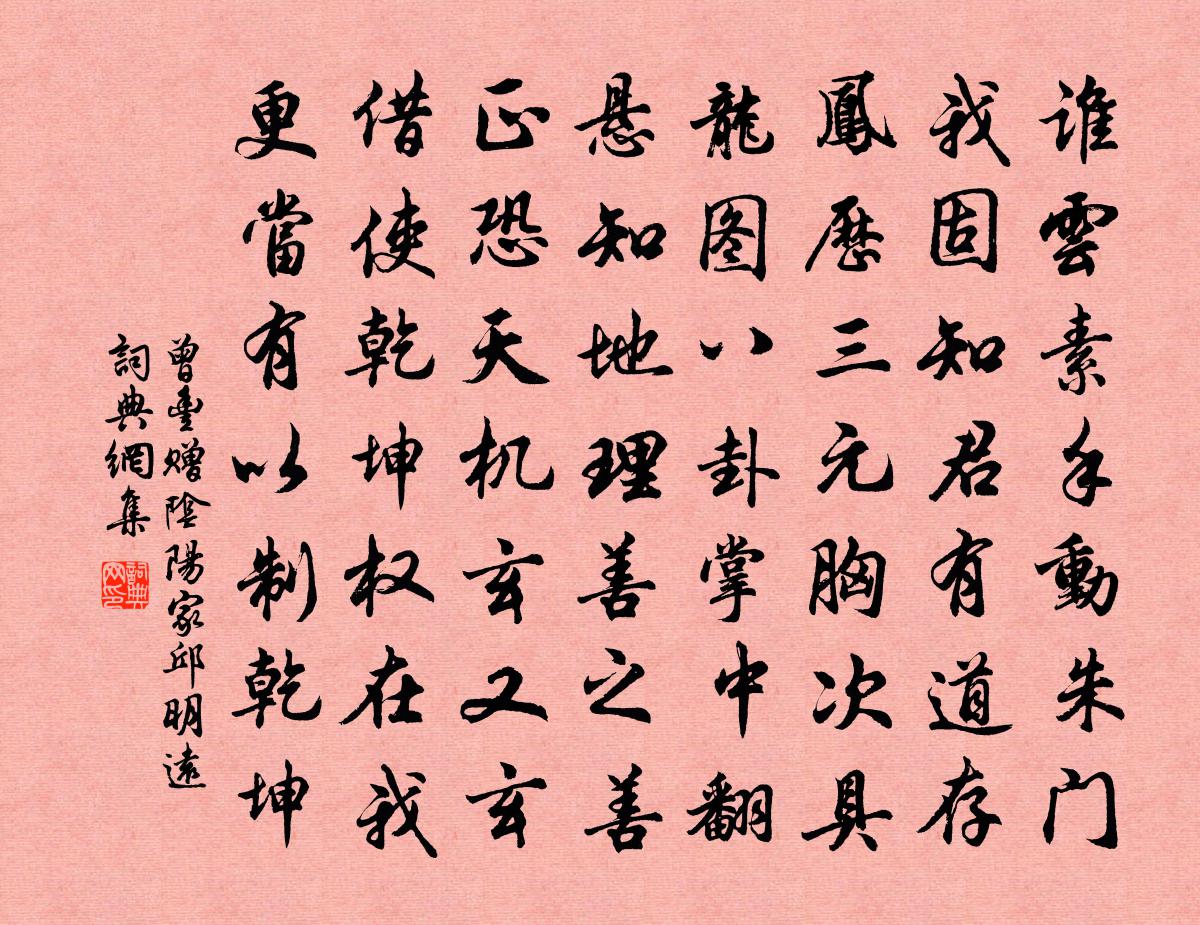 谁雲素手動朱门
我固知君有道存
鳳歷三元胸次具
龍图八卦掌中翻
悬知地理善之善
正恐天机玄又玄
借使乾坤权在我
更當有以制乾坤
曾豊赠陰陽家邱明遠
詞典網集
詞典网印